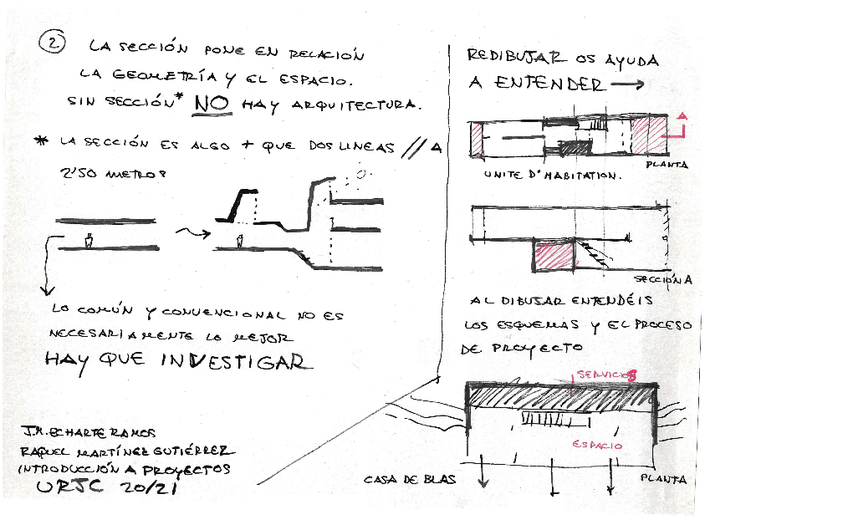 2 LA SECCIÓN PONE EN RELACIÓN
LA GEOMETRÍA Y EL ESPACIO.
SIN SECCIÓN* NO HAY ARQUITECTURA.
* LA SECCIÓN ES ALGO + QUE DOS LINEAS // A
2'50 METROS
LO COMÚN Y CONVENCIONAL NO ES
NECESARIAMENTE LO MEJOR
HAY QUE INVESTIGAR
J.M. ECHARTE RAMOS
RAQUEL MARTÍNEZ GUTIÉRREZ
INTRODUCCIÓN A PROYECTOS
URJC 20/21
REDIBUJAR OS AYUDA
A ENTENDER →
A
PLANTA
UNITE D'HABITATION.
SECCIÓN A
AL DIBUJAR ENTENDÉIS
LOS ESQUEMAS Y EL PROCESO
DE PROYECTO
SERVICIOS
ESPACIO
CASA DE BLAS
PLANTA